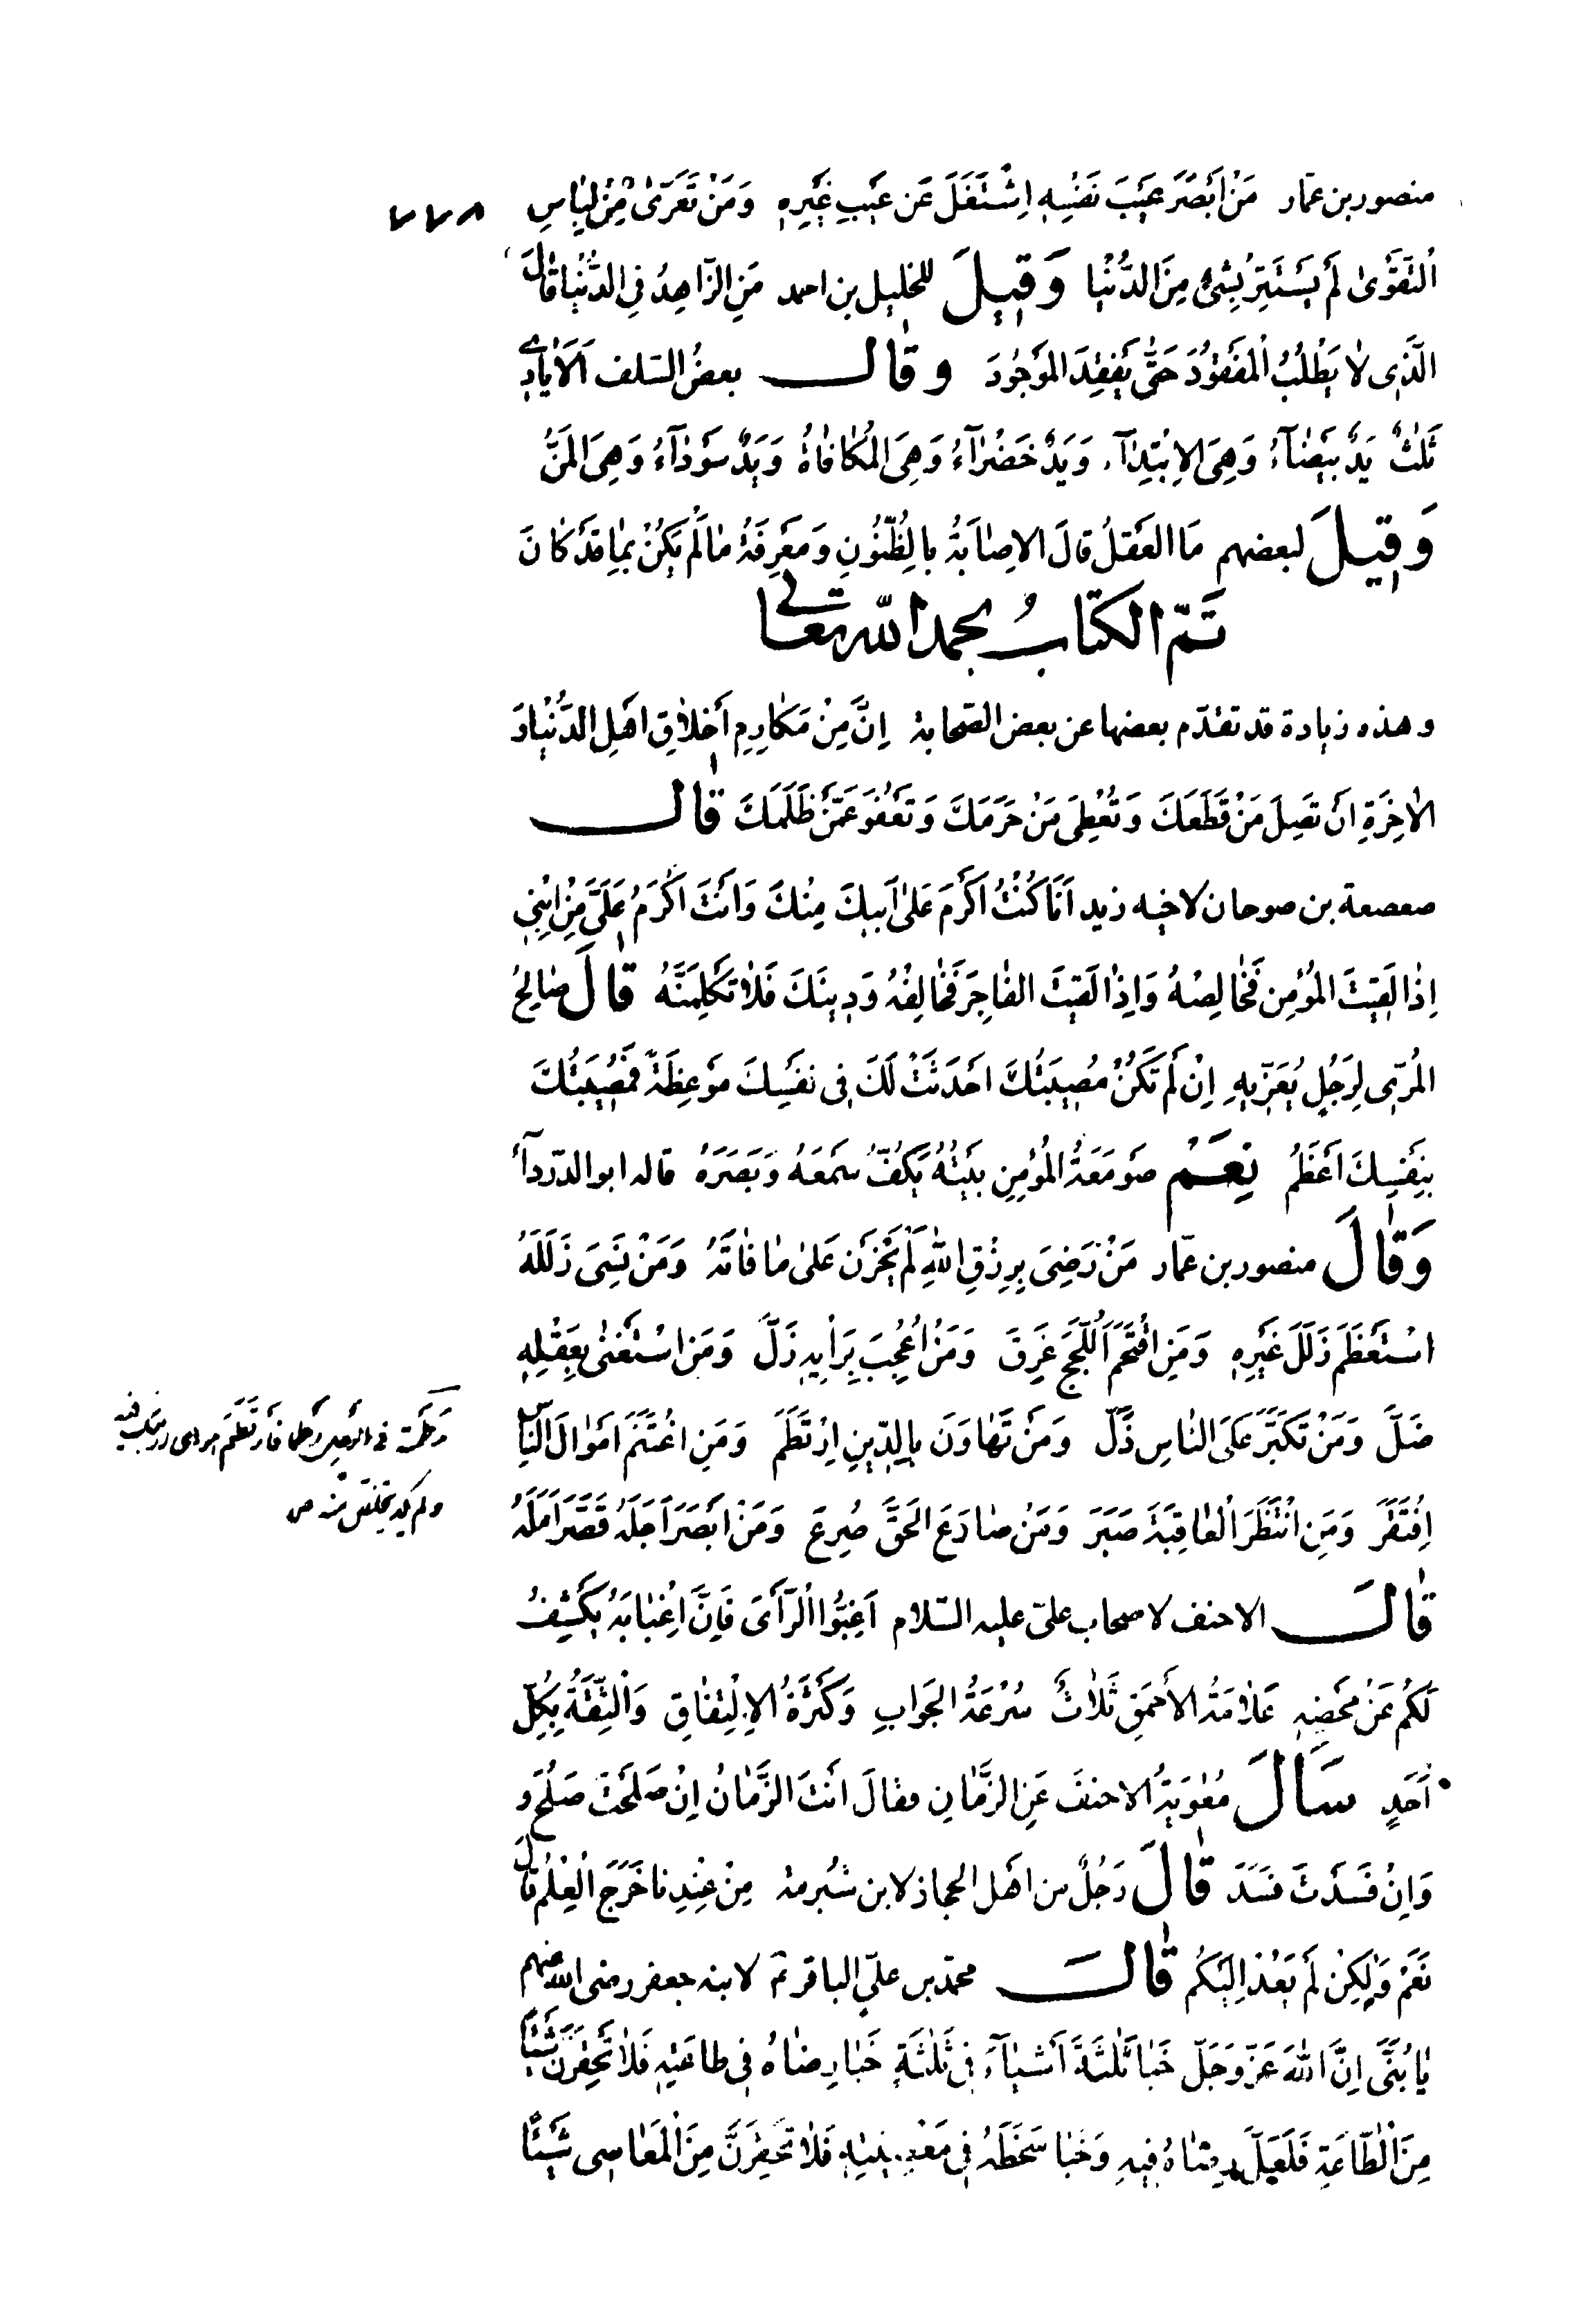 منصور بن عمّار مَنْ اَبْصَرَ عَيْبَ نَفْسِهِ اِشْتَغَلَ عَن عَيْبِ غَيْرِهِ وَمَنْ تَعَرّىٰ مِنْ لِبٰاسِ
التَّقْوىٰ لَمْ يَسْتَتِرْ بِشَئٍ مِنَ الدُّنْيٰا وَقِيلَ للخليل بن احمد مَنِ الزّاهِدُ فِى الدُّنْيٰا قٰالَ
الَّذِى لٰا يَطْلُبُ الْمَفْقُودَ حَتّٰى يَفْقِدَ المَوْجُودَ وقٰال بعضُ السّلف اَلْاَيٰادِى
ثَلٰثٌ يَدٌ بَيْضٰآءُ وَهِىَ الاِبْتِدٰآءُ وَيَدٌ خَضْرٰآءُ وَهِىَ الْمُكٰافٰاةُ وَيَدٌ سَوْدٰآءُ وَهِىَ المَنُّ
وَقِيلَ لبعضهم مَا العَقْلُ قالَ الاِصٰابَةُ بِالظُّنُونِ وَمَعْرِفَةُ مٰا لَمْ يَكُنْ بِمٰا قَدْ كٰانَ
تَمّ الكتابُ بحمد اللّه تعالى
وهذه زيادة قد تقدّم بعضها عن بعض الصّحابة اِنَّ مِنْ مَكٰارِمِ أَخْلاٰقِ اهَلِ الدُّنْيٰا وَ
الاٰخِرَةِ انْ تَصِلَ مَنْ قَطَعَكَ وَتُعْطِىَ مَنْ حَرَمَكَ وَتَعْفُوَ عَمَّنْ ظَلَمَكَ قٰال
صعصعة بن صوحان لاخيه زيد اَنَا كُنْتُ اَكْرَمَ عَلىٰ اَبيكَ مِنْكَ وَاَنْتَ اَكْرَمُ عَلَىَّ مِنْ ابْنِى
اِذٰا لَقِيتَ المُؤْمِن فَخٰالِصْهُ وَاِذٰا لَقِيتَ الفٰاجِرَ فَخٰالِفْهُ وَدِينَكَ فَلاٰ تَكْلِمَنَّهُ قٰالَ صٰالِحُ
المُرّى لِرَجُلٍ يُعَزّيهِ اِنْ لَمْ تَكُنْ مُصِيبَتُكَ احْدَثَتْ لَكَ فِى نَفْسِكَ مَوْعِظَةً فَمُصِيبَتُكَ
بِنَفْسِكَ اَعْظَمُ نِعْمَ صَوْمَعَةُ الْمُؤْمِنِ بَيْتُهُ يَكُفُّ سَمْعَهُ وَبَصَرَهُ قاله ابو الدّرداۤء
وَقٰالَ منصور بن عمّار مَنْ رَضِىَ بِرِزْقِ اللّٰهِ لَمْ يَحْزَن عَلىٰ مٰا فٰاتَهُ وَمَنْ نَسِىَ زَلَلَهُ
اسْتَعْظَمَ زَلَلَ غَيْرِهِ وَمَنِ اقْتَحَمَ اللُّجَجَ غَرِقَ وَمَنْ اُعْجِبَ بِرَأيِهِ زَلَّ وَمَنِ اسْتَغْنىٰ بِعَقْلِهِ
ضَلَّ وَمَنْ تَكَبَّرَ عَلَى النّاسِ ذَلّ وَمَنْ تَهٰاوَنَ بِالدِّينِ ارْتَطَمَ وَمَنِ اغْتَنَمَ امْوٰالَ النّاسِ
ولم يكد يتخلّص منه ص
اِفْتَقَرَ وَمَنِ انْتَظَرَ الْعٰاقِبَةَ صَبَرَ وَمَنْ صٰارَعَ الحَقَّ صُرِعَ وَمَنْ ابْصَرَ اَجَلَهُ قَصَّرَ اَمَلَهُ
قٰال الاحنف لاصحاب علىّ عليه السّلام اَغِبُّوا الرّأىَ فَاِنَّ اِغْبٰابَهُ يَكْشِفُ
لَكُمْ عَنْ مَحْضِهِ عَلاٰمَةُ الأحمَقِ ثَلاٰثٌ سُرْعَةُ الجَوَابِ وَكَثْرَةُ الاِلْتِفٰاقِ وَالثِّقَةُ بِكُلِّ
اَحَدٍ سَأَلَ مُعٰوِيَةُ الاحنفَ عَنِ الزَّمٰانِ فقالَ انْتَ الزَّمٰانُ اِنْ صَلَحْتَ صَلُحَ وَ
وَاِنْ فَسَدْتَ فَسَدَ قٰالَ رَجُلٌ من اهل الحجاز لابن شُبرمة مِنْ عِنْدِنا خَرَجَ الْعِلْمُ قٰالَ
نَعَمْ وَلٰكِنْ لَمْ يَعُدْ اِلَيْكُم قٰال محمّد بن علىّ الباقر ثمّ لابنه جعفر رضى اللّه عنهم
يٰا بُنَىَّ اِنَّ اللّٰهَ عَزّ وَجَلّ خَبٰا ثَلٰثَةَ اَشيٰآءَ فِى ثَلٰثَةٍ خَبٰا رِضٰاهُ فِى طٰاعَتِهِ فَلاٰ تَحْقِرَنَّ شَيْئًا
مِنَ الْطّٰاعَةِ فَلَعَلَّ رِضٰاهُ فِيهِ وَخَبٰا سَخَطَهُ فِى مَعْصِيَتِهِ فَلاٰ تَحْقِرَنَّ مِنَ الْمَعٰاصِى شَيْئًا